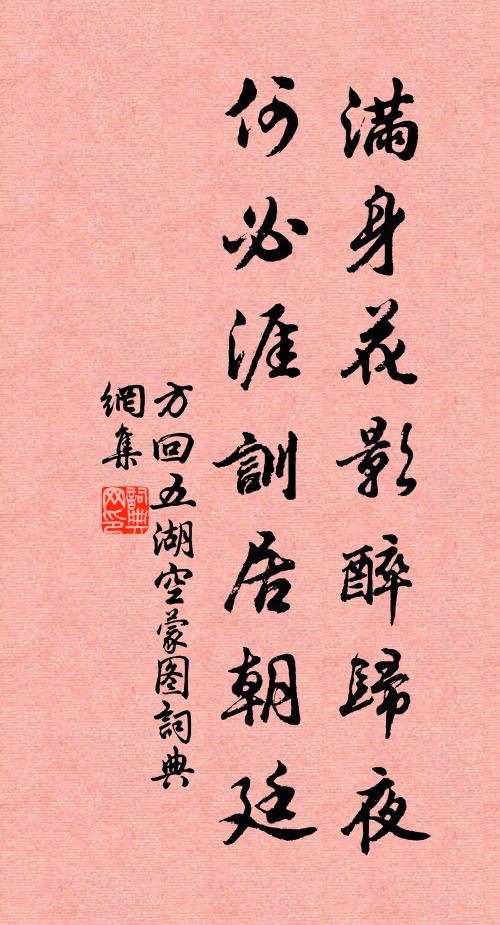 滿身花影醉歸夜
何必涯訓居朝廷
方回五湖空蒙图詞典
網集
詞典
网印